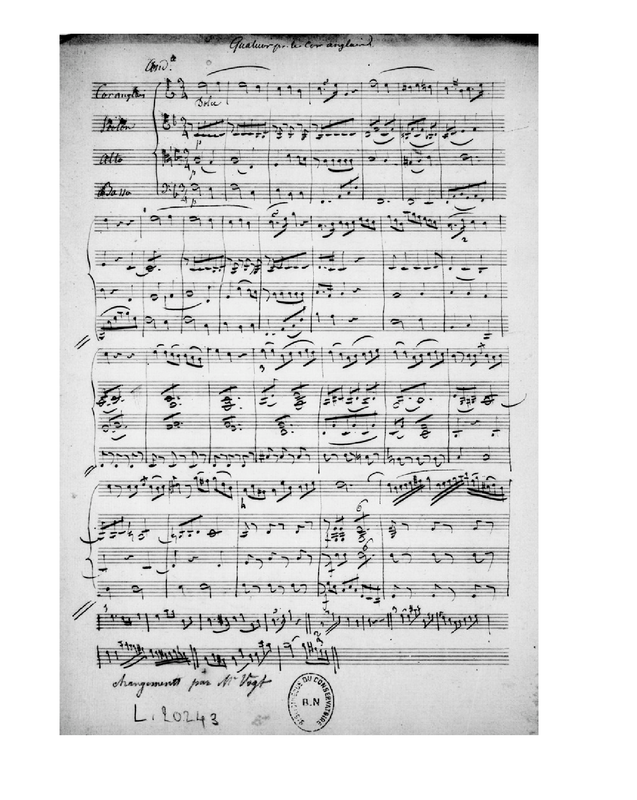 Quatuor pr. le Cor anglais
And.te
Cor anglais
Dolce
Violon
p
Alto
p
Basso
p
2
3
4
3
2
changements par Mr Vogt
L. 20243
BIBLIOTHEQUE DU CONSERVATOIRE
B.N